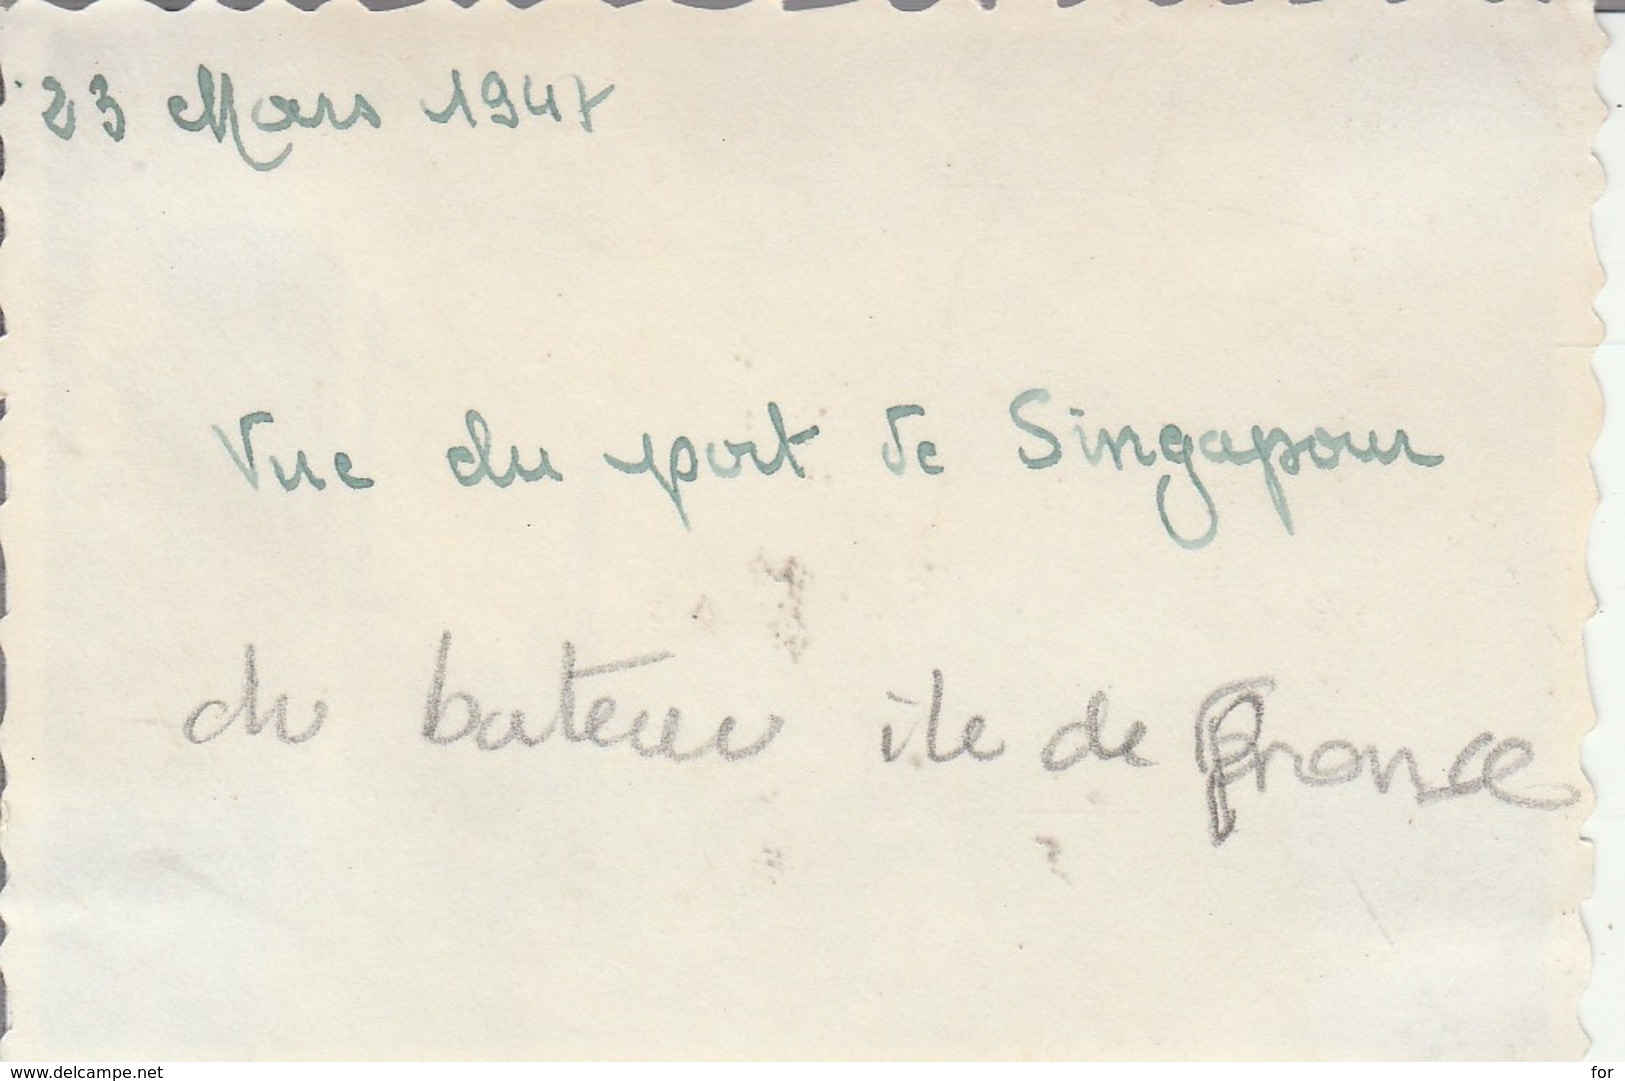 23 Mars 1947
Vue du port de Singapour
du bateau île de France
www.delcampe.net
for